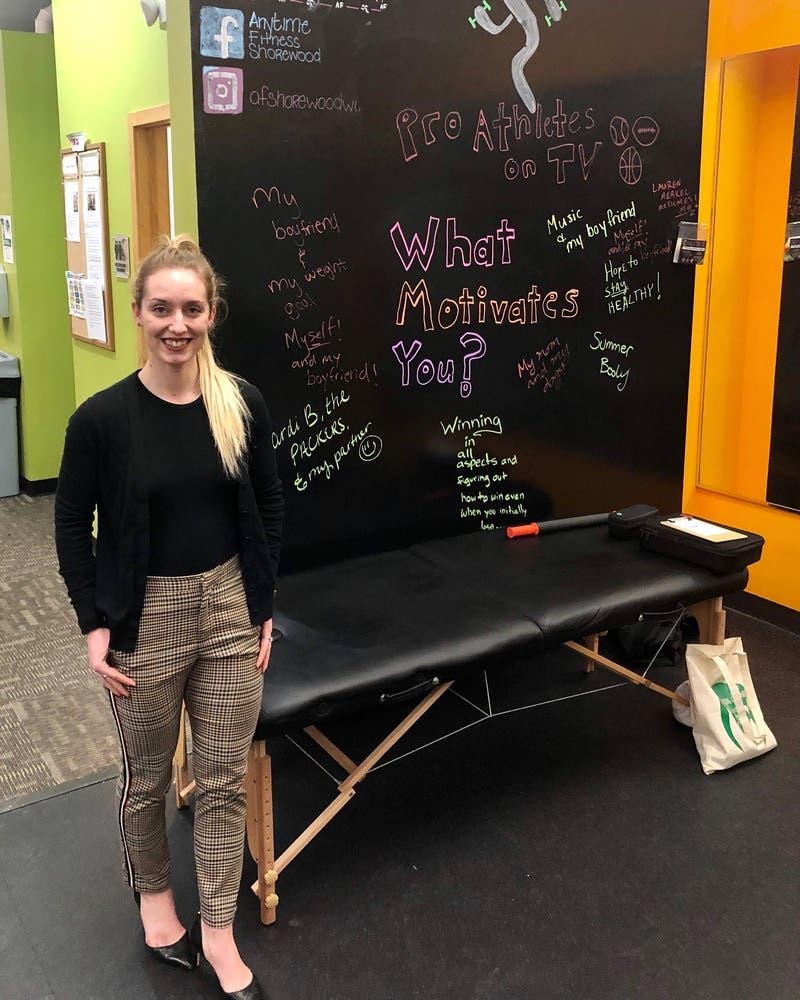 Anytime
Fitness
Shorewood
afshorewoodwi
Pro Athletes
on TV
LAUREN
MERKEL
MOTIVATES
ME!
My
boyfriend
&
my weight
goal
What
Motivates
You?
Music
& my boyfriend
Myself!
and/or my
boyfriend
Hope to
stay
HEALTHY!
Myself!
and my
boyfriend!
My mom
and my
Summer
Body
Cardi B, the
PACKERS,
& my partner
Winning
in
all
aspects and
figuring out
how to win even
when you initially
lose...